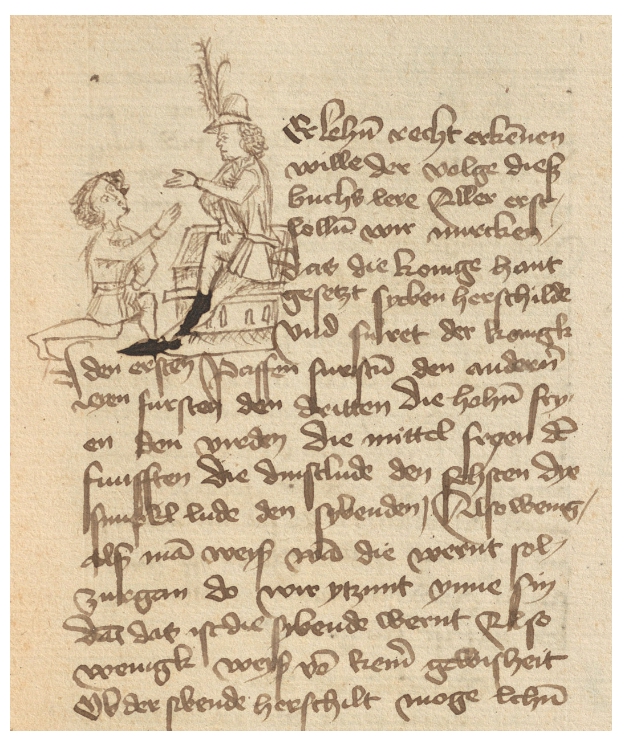 Er lehn̄ recht erkēnen
wille der volge dieß
buchs lere Aller erst
solln̄ wir mircken
das die konige hant
gesetzt syeben herschilde
Vnd furet der konigk
den ersten Paffen furstn̄ den andern̄
leyen fursten den dritten Die hohn̄ fry-
en den vierden Die mittel frygen dē
funfften die dinstlude den sehsten Der
lude den sybenden Also wenig
alß mā weiß wā die wernt sol
zurgan do wir ytzunt ynne sin
das ist die sybende wernt Also
wenigk weyß vō keinr̄ gewisheit
Ob der sibende herschilt moge lehn̄